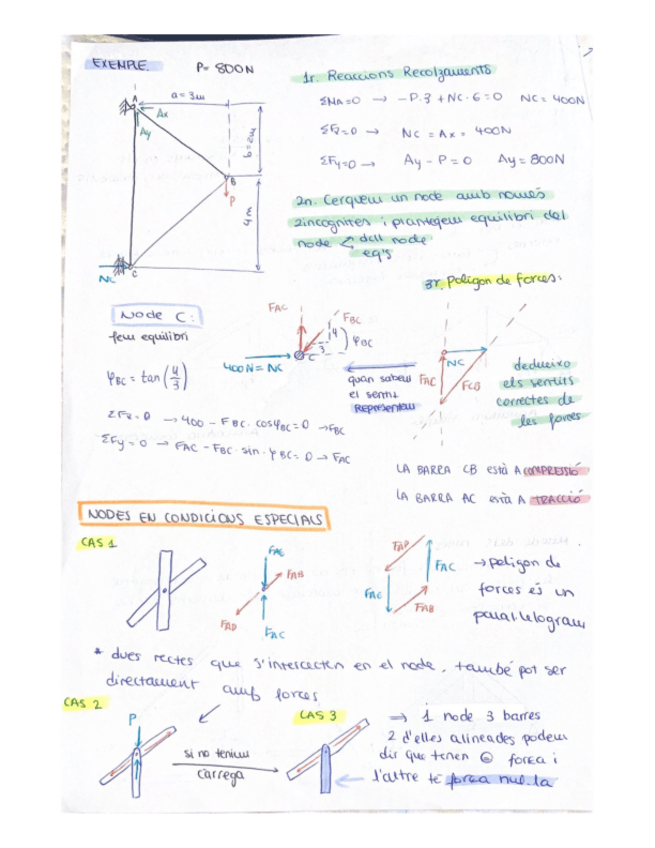 EXEMPLE. P= 800N
1r. Reaccions Recolzaments
ΣMA=0 → -P·3 + NC·6=0 NC= 400N
ΣFx=0 → NC = Ax = 400N
ΣFy=0 → Ay - P = 0 Ay= 800N
a= 3m
A
Ax
Ay
b= 2m
B
P
4m
C
NC
2n. Cerquem un node amb només
2 incognites i plantegem equilibri del
node < dcll node
eq's
3r. Polígon de forces:
Node C:
fem equilibri
φBC = tan (4/3)
ΣFx=0 → 400 - FBC · cosφBC=0 → FBC
ΣFy=0 → FAC - FBC · sin·φBC=0 → FAC
FAC
FBC
4
3
φBC
C
400N=NC
quan sabem
el sentit
Representem
NC
FAC
FCB
dedueixo
els sentits
correctes de
les forces
LA BARRA CB està A COMPRESSIÓ
LA BARRA AC està A TRACCIÓ
NODES EN CONDICIONS ESPECIALS
CAS 1
FAE
FAB
FAD
FAC
FAD
FAC
FAE
FAB
→ polígon de
forces és un
paral·lelogram
* dues rectes que s'intercecten en el node, també pot ser
directament amb forces
CAS 2
P
si no tenim
càrrega
CAS 3
⇒ 1 node 3 barres
2 d'elles alineades podem
dir que tenen = força i
l'altre té força nul·la